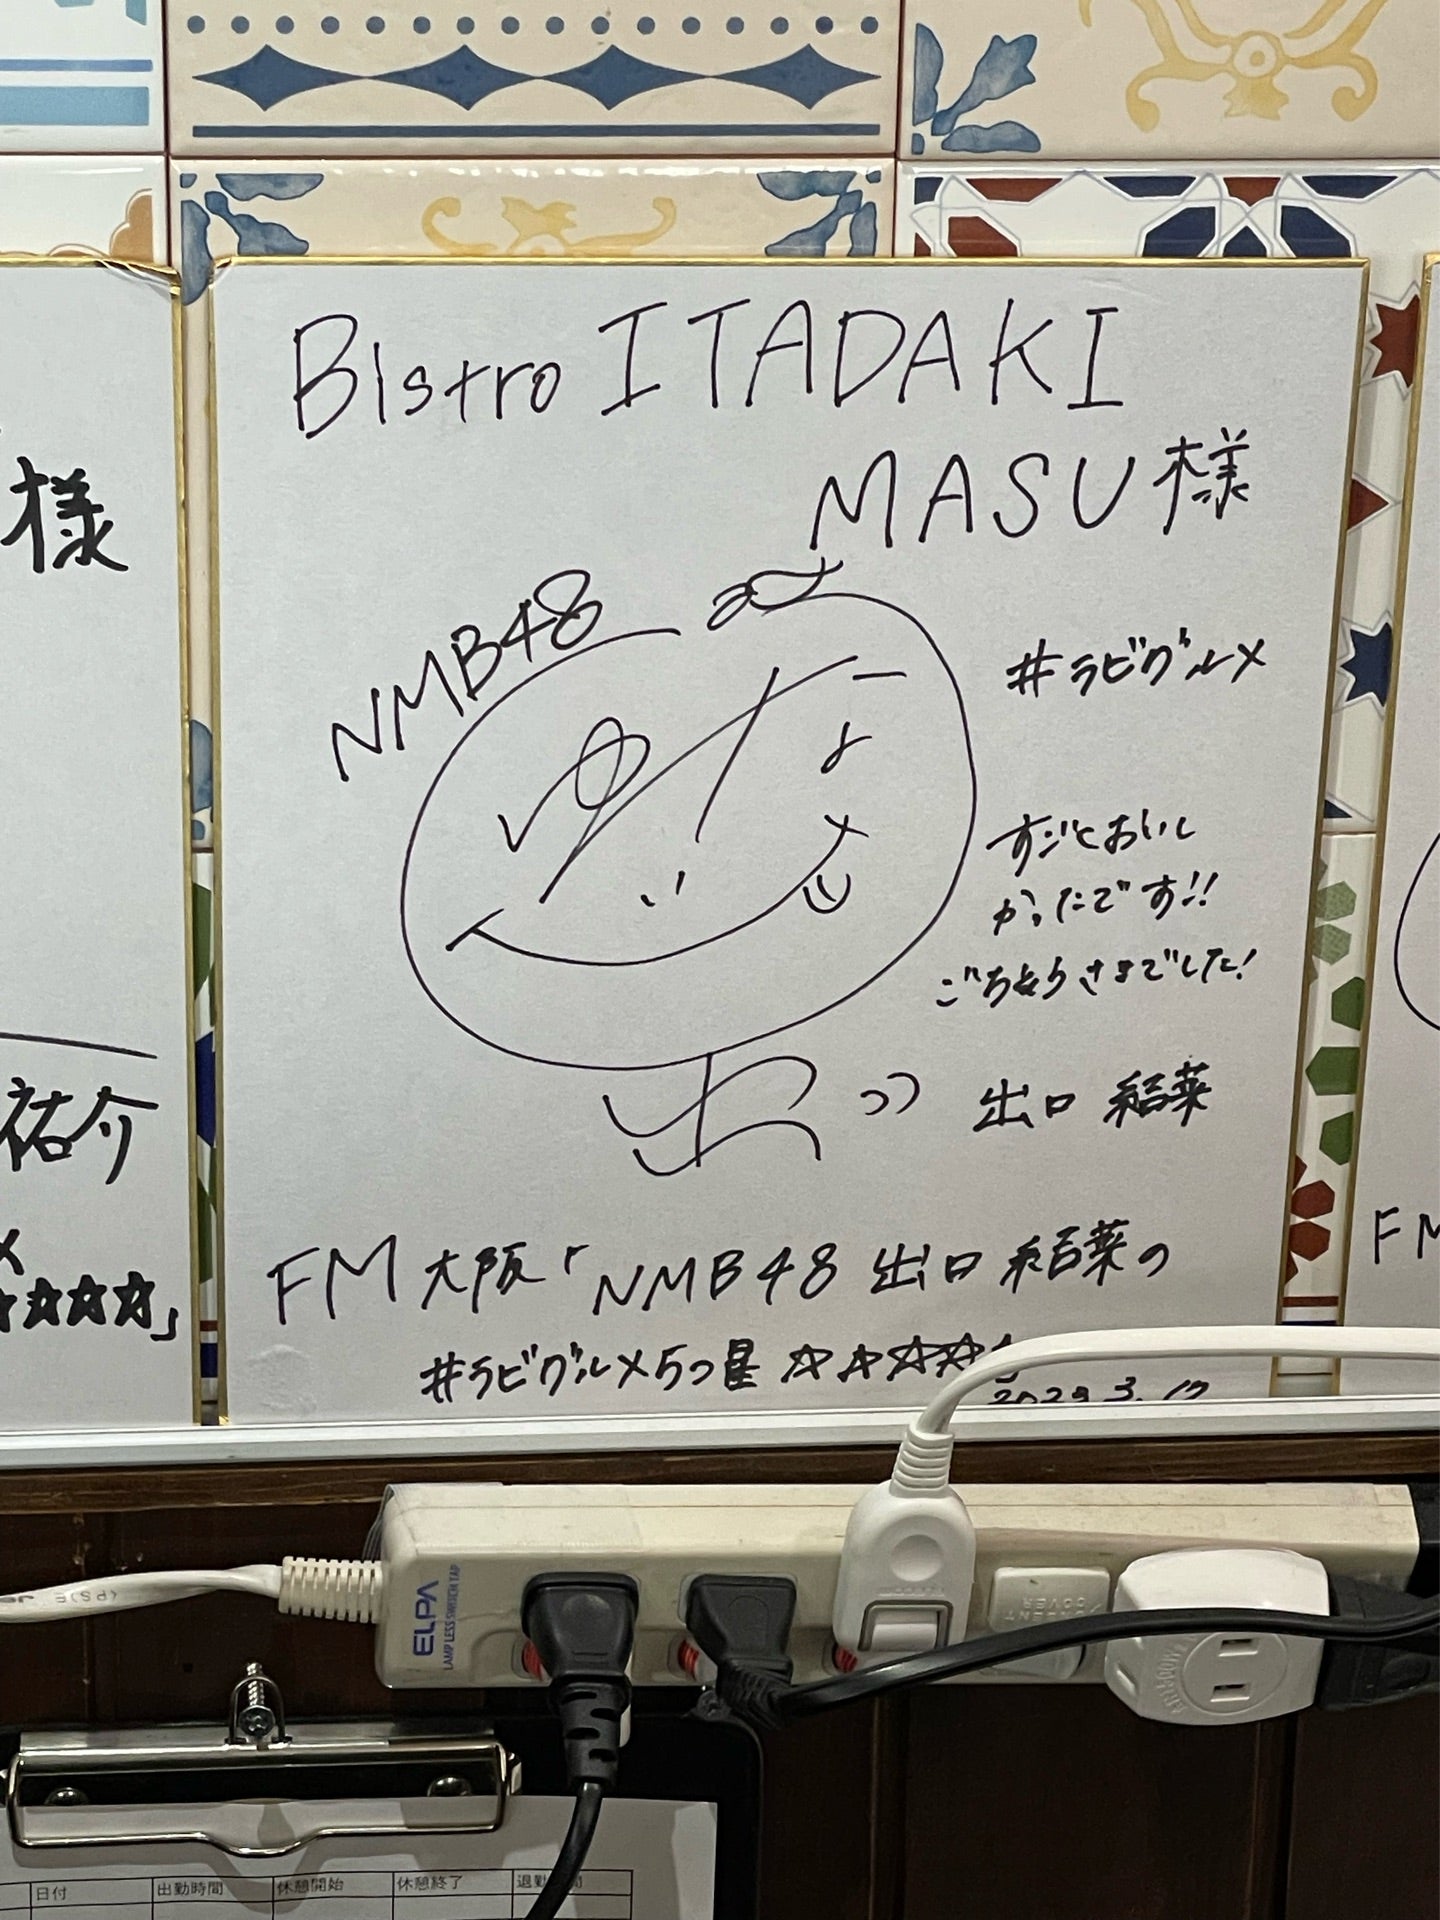 Bistro ITADAKI
MASU様
NMB48
#ラビグルメ
すごくおいし
かったです!!
ごちそうさまでした!
出口 結菜
FM大阪「NMB48 出口結菜の
#ラビグルメ5つ星☆☆☆☆
3.17
様
祐介
☆☆☆☆」
FM
ELPA
LAMP LESS SWITCH TAP
日付 出勤時間 休憩開始 休憩終了